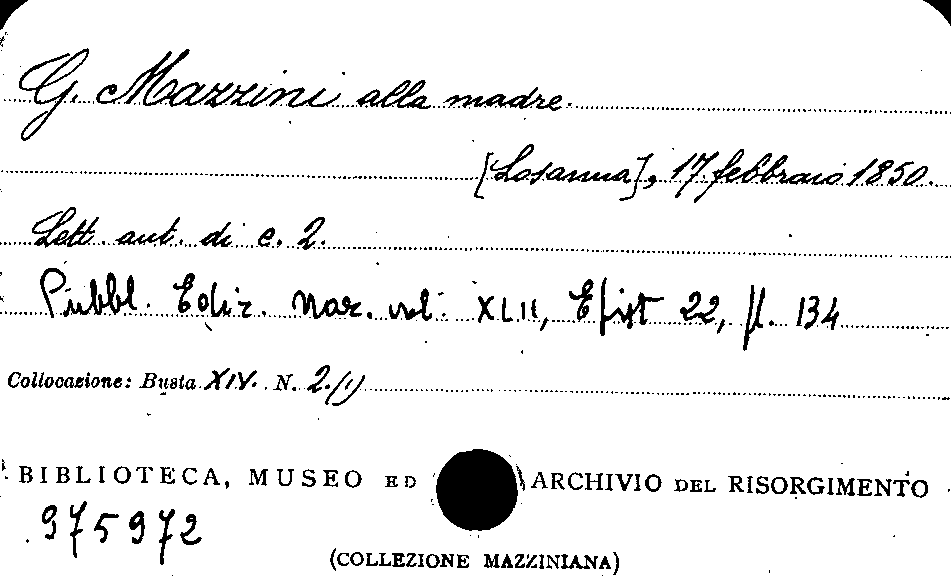 G. Mazzini alla madre.
[Losanna], 17 febbraio 1850.
Lett. aut. di c. 2.
Pubbl. Ediz. Naz. vol. XLII, Epist 22, p. 134
Collocazione: Busta XIV. N. 2.(1)
BIBLIOTECA, MUSEO ED ARCHIVIO DEL RISORGIMENTO
975972
(COLLEZIONE MAZZINIANA)